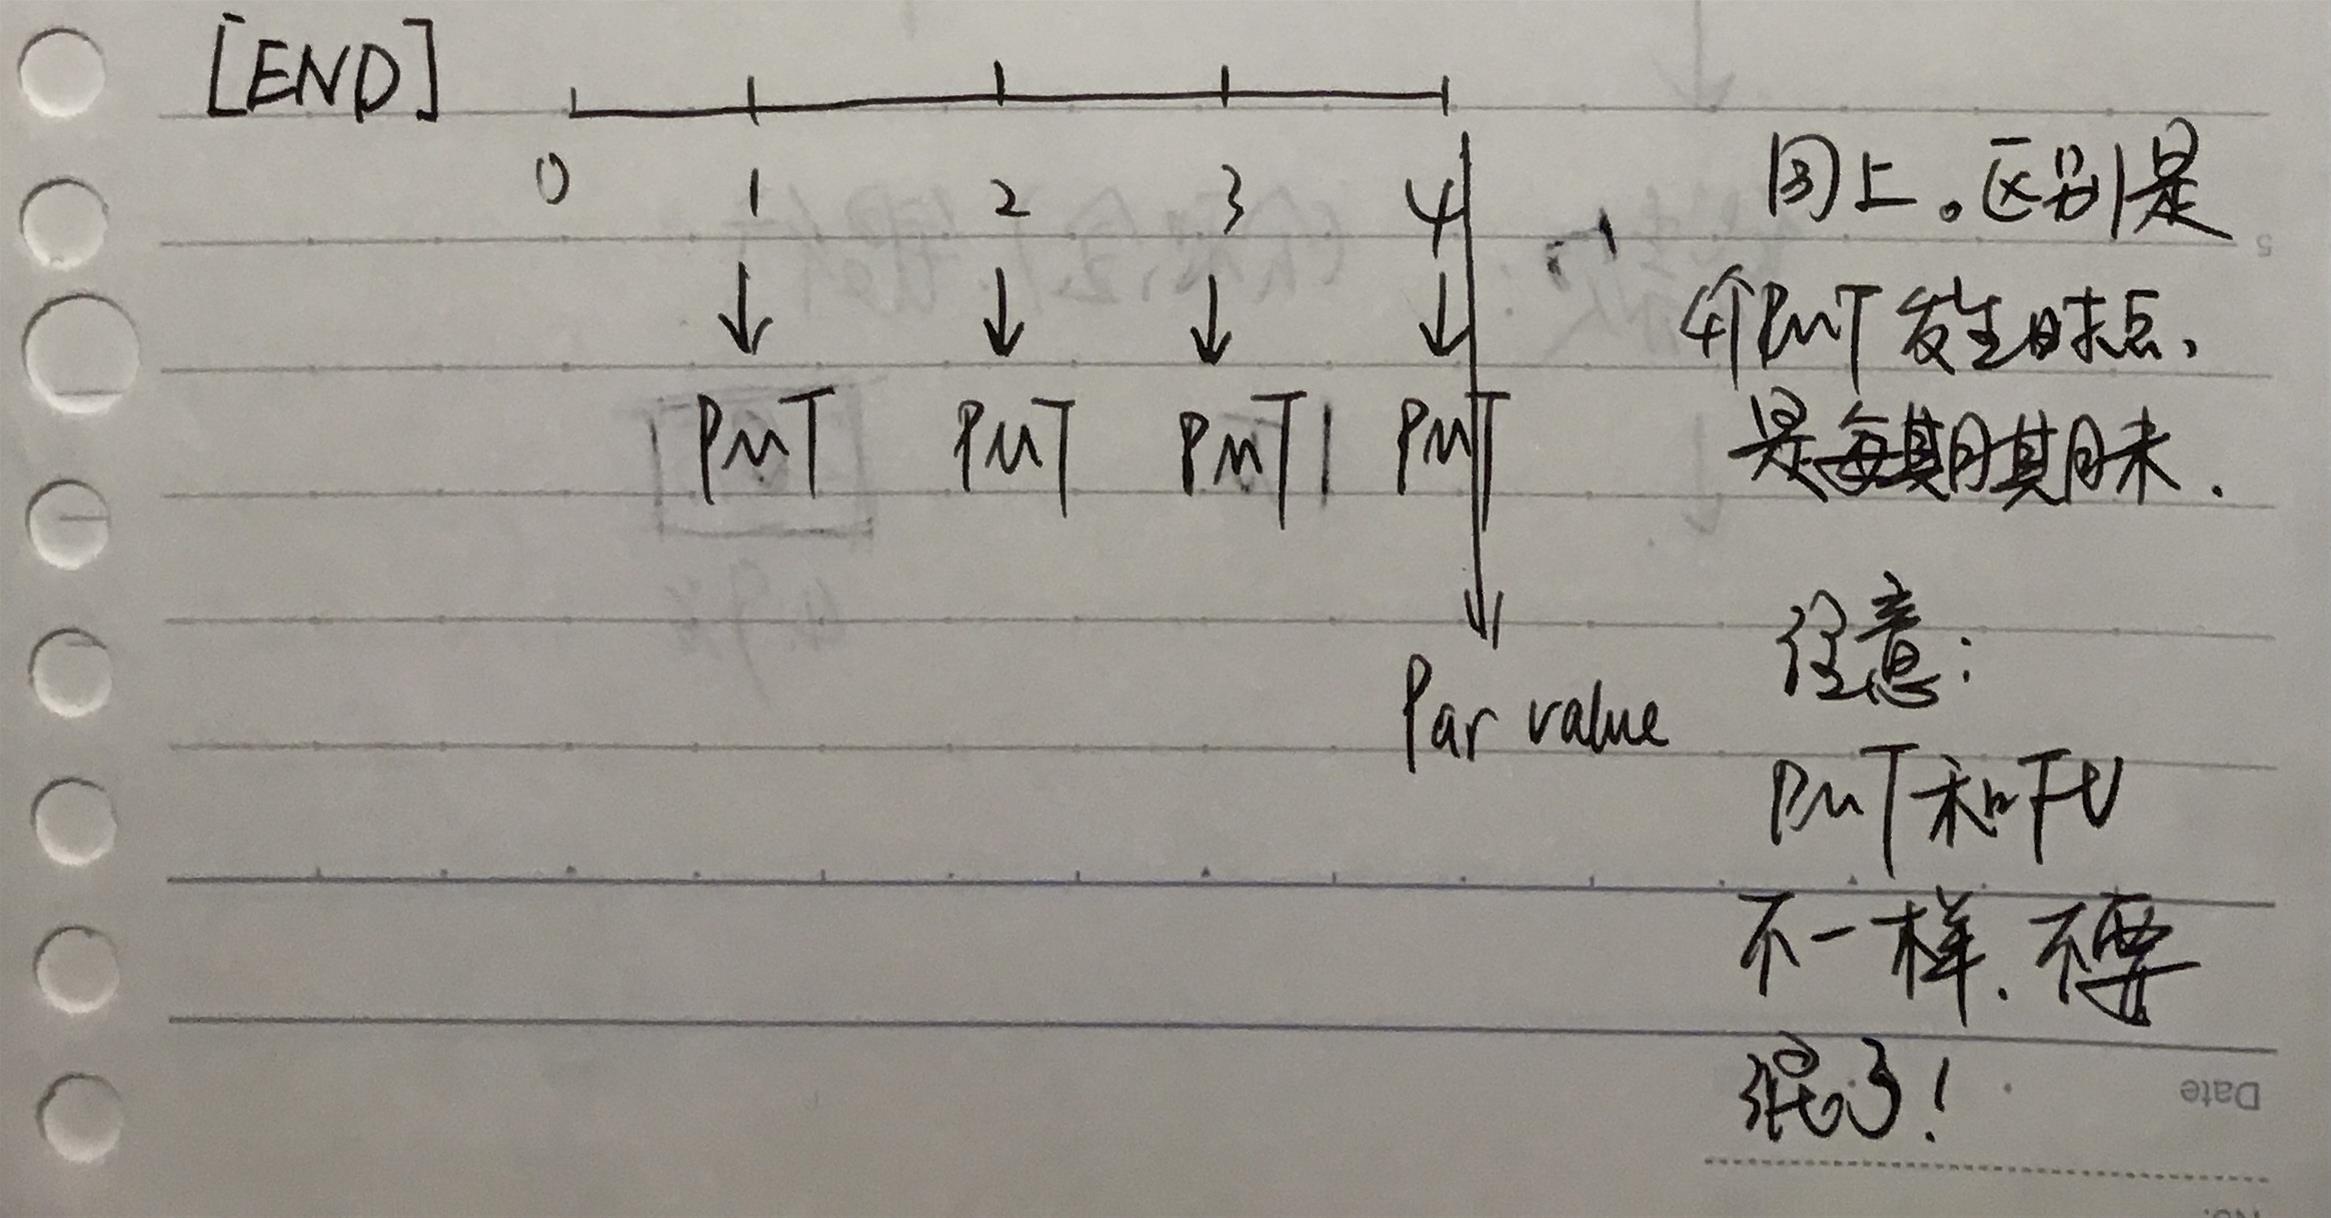 [END]
0 1 2 3 4
PMT PMT PMT PMT
Par value
同上。区别是
4个PMT发生时点，
是每期期末.
注意：
PMT和FV
不一样.不要
混了！
Date